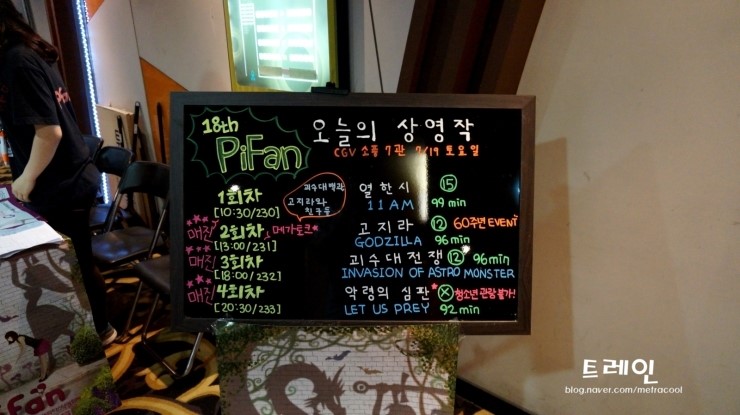 18th
PiFan
오늘의 상영작
CGV 소풍 7관 7/19 토요일
1회차
[10:30/230]
괴수대백과
고지라와
친구들
열한시 15
11AM 99 min
매진 2회차 메가토크
[13:00/231]
고지라 12 60주년 EVENT
GODZILLA 96 min
매진 3회차
[18:00/232]
괴수대전쟁 12 96 min
INVASION OF ASTRO MONSTER
매진 4회차
[20:30/233]
악령의 심판 X 청소년 관람불가!
LET US PREY 92 min
Fan
트레인
blog.naver.com/metracool